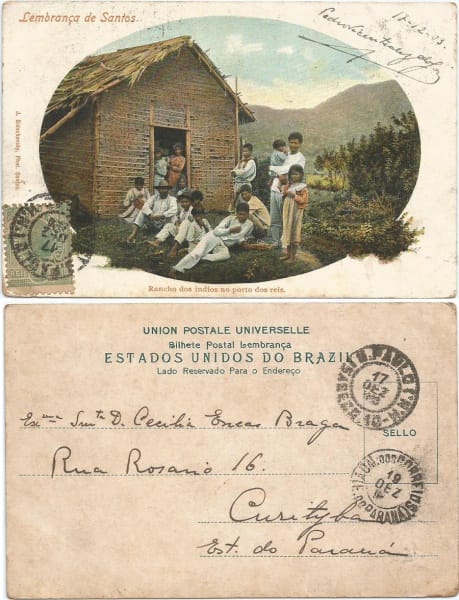 Lembrança de Santos.
17-12-03
J. Bidschovsky, Phot. Santos.
Rancho dos indios no porto dos reis.
UNION POSTALE UNIVERSELLE
Bilhete Postal Lembrança
ESTADOS UNIDOS DO BRAZIL
Lado Reservado Para o Endereço
17
DEZ
SELLO
Exma Snrta D. Cecilia Eneas Braga
Rua Rosario 16.
19
DEZ
Curityba
Est. do Paraná